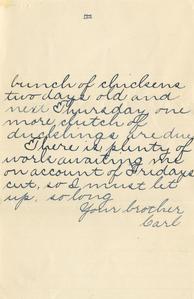 bunch of chicksens
two days old and
next Thursday one
more clutch of
ducklings are due
There is plenty of
work awaiting me
on account of Fridays
cut, so I must let
up. so long
Your brother
Carl